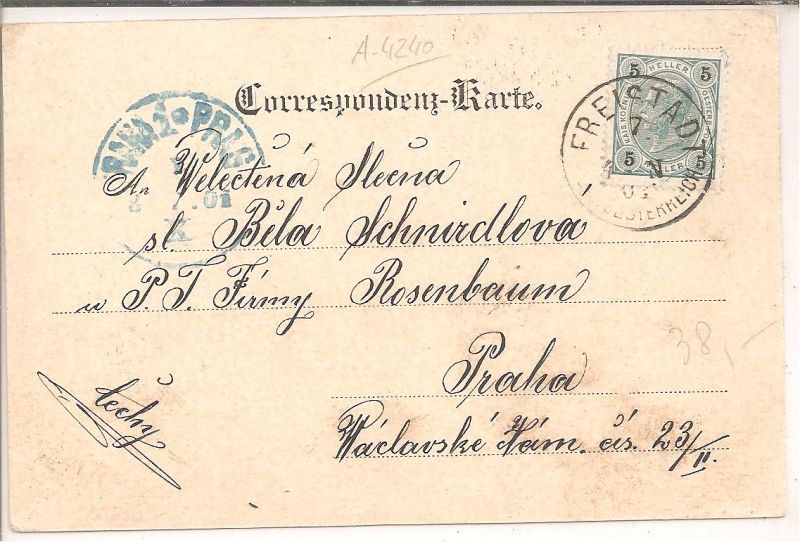 A-4240
Correspondenz-Karte.
5 HELLER 5
KAIS. KÖN. OESTERR. POST
5 HELLER 5
FREISTADT
7
N
01
OESTERREICH
PRAHA 1 PRAG
01
An Velectěná Slečna
sl. Běla Schnirdlova
u P. T. Firmy Rosenbaum
38,-
Praha
Čechy
Václavské Nám. čís. 23/II.